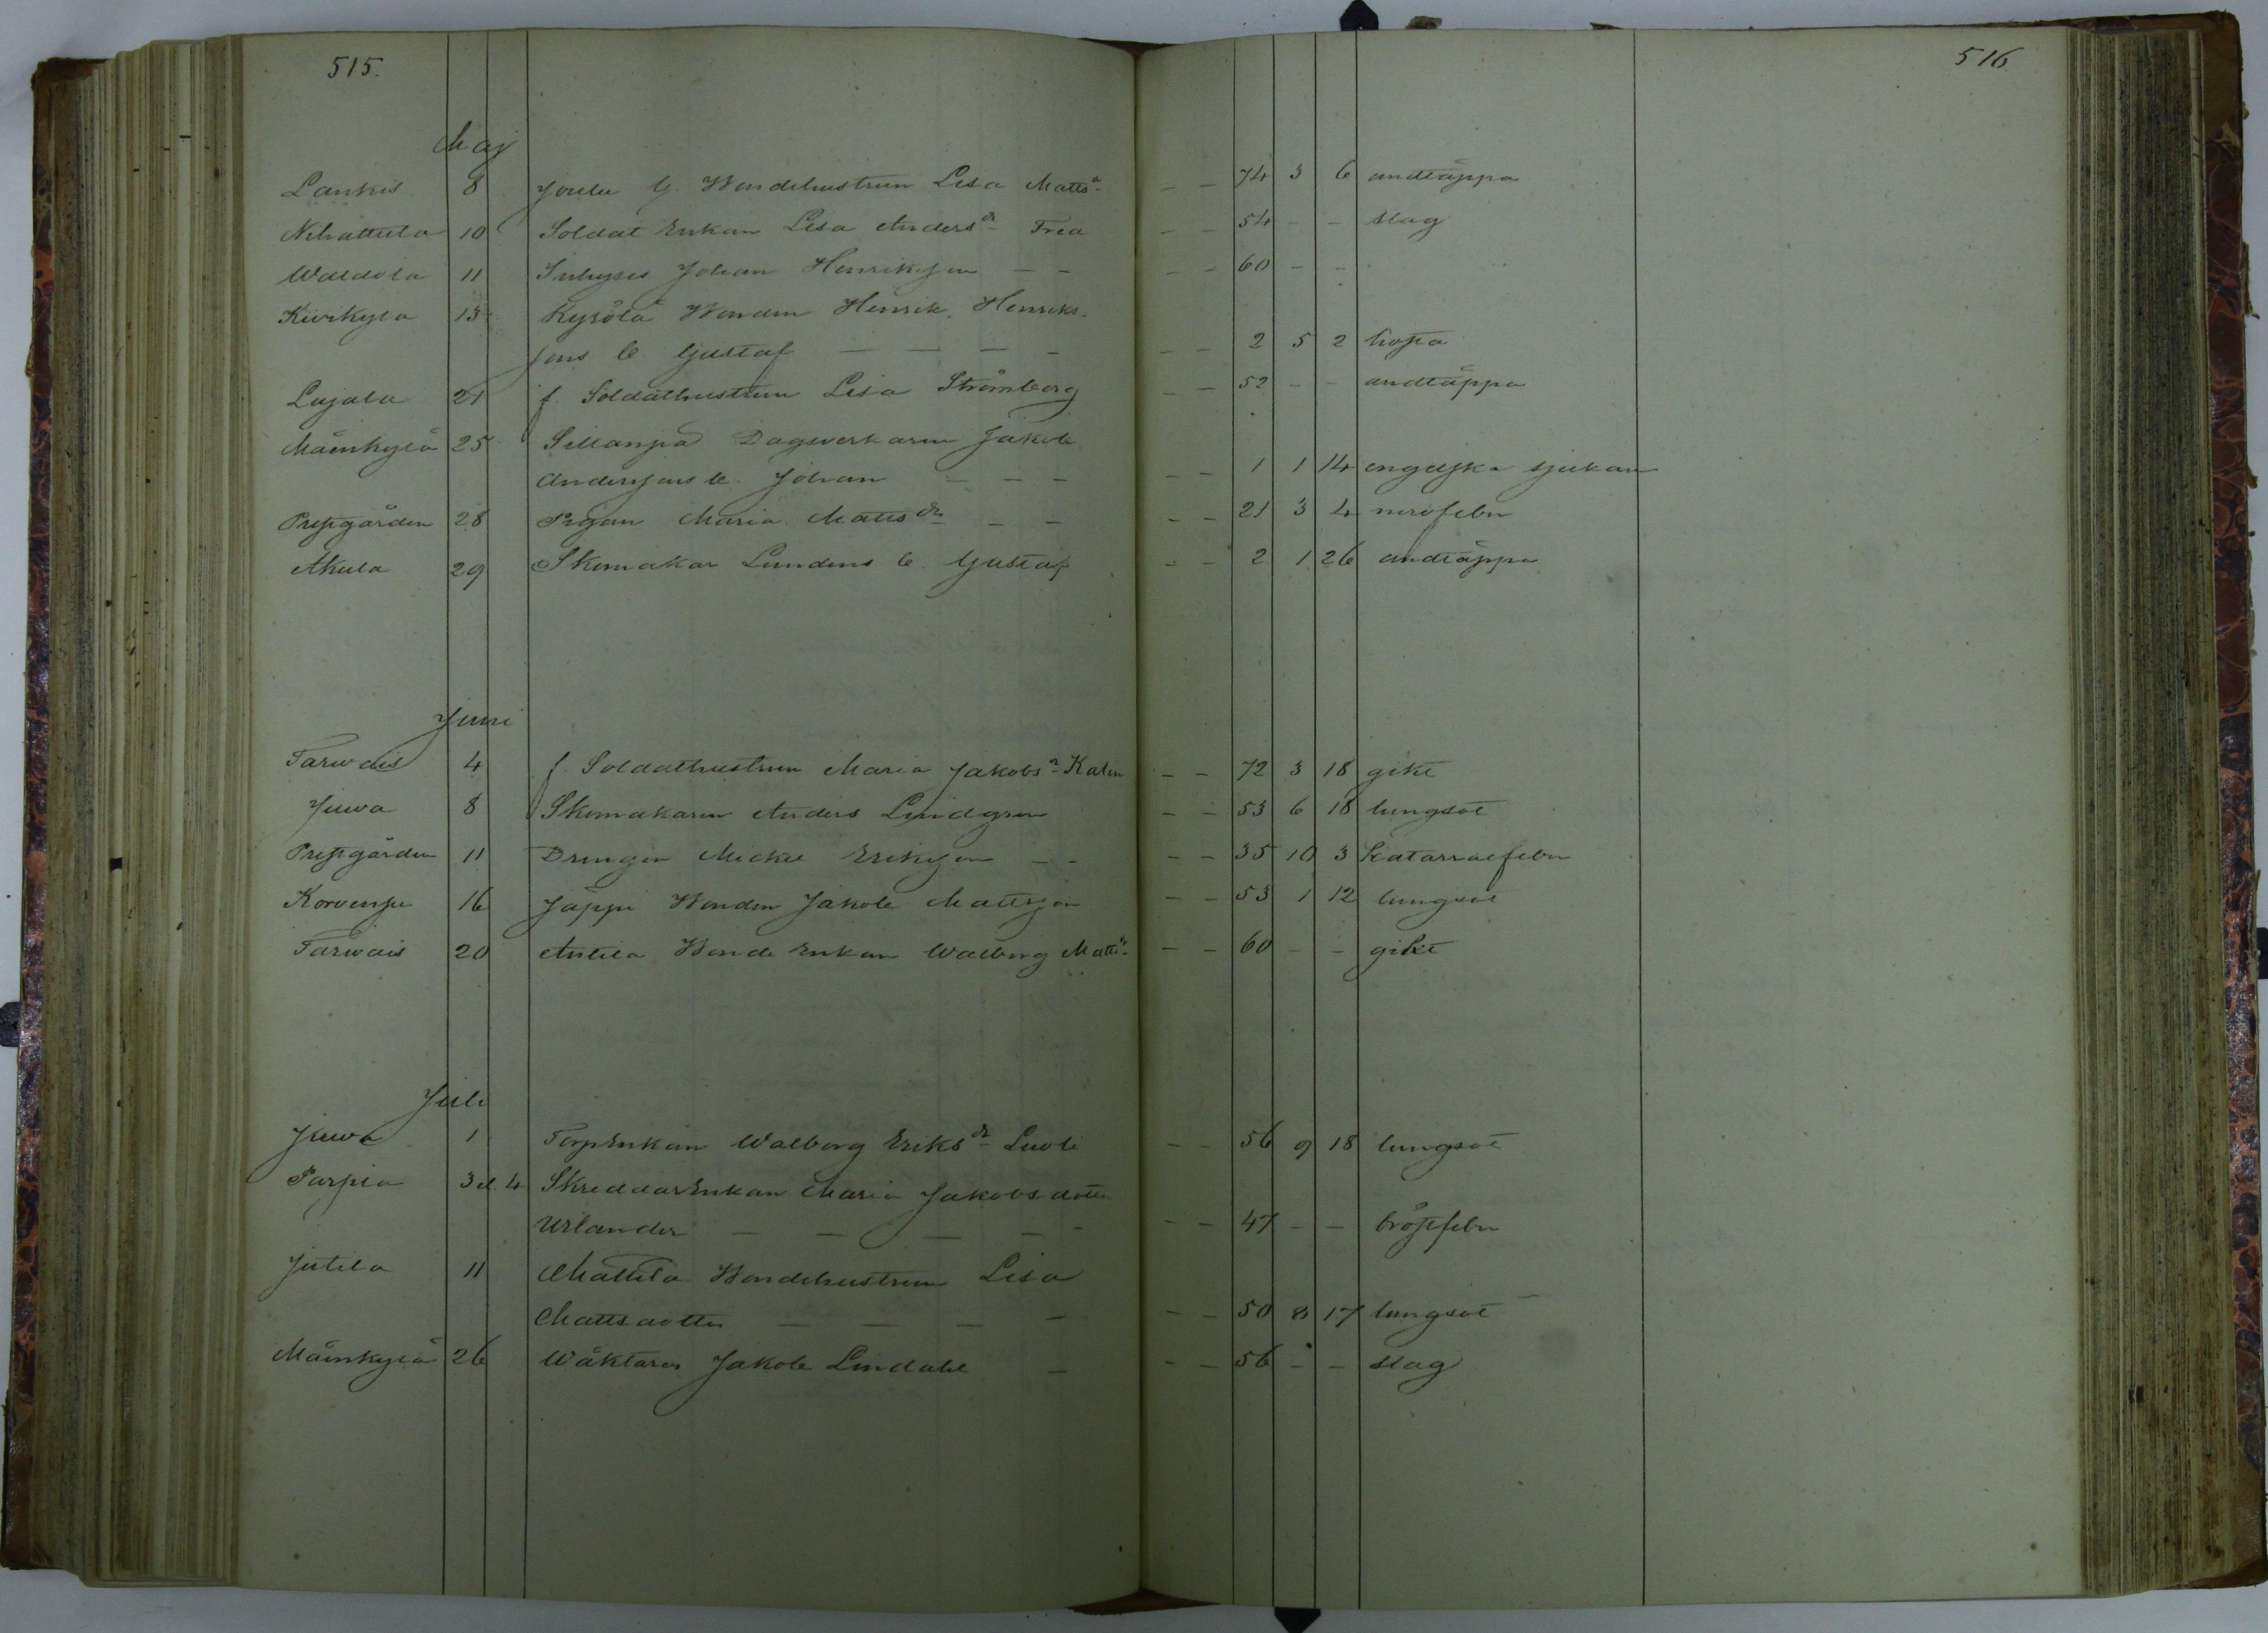 515. 516
Maj
Lankis 8 Joulu G. Bondehustrun Lisa Matts dr - - 74 3 6 andtäppa
Nihattula 10 Soldat Enkan Lisa Anders dr Fred - - 54 - - slag
Waldola 11 Inhyses Johan Henriksson - - - - 60 - -
Kivikyla 13 Kyrölä Bonden Henrik Henriks-
sons b. Gustaf - - - - - - 2 5 2 hosta
Lajala 21 f. Soldathustrun Lisa Strömberg - 52 - - andtäppa
Mäenkylä 25 Sillanpä Dagsverkaren Jakob
Anderssons b. Johan - - - - - 1 1 14 engelska sjukan
Prestgården 28 Pigan Maria Matts dr - - - - 21 3 4 nervfeber
Akula 29 Skomakar Lundens b. Gustaf - - 2 1 26 andtäppa
Juni
Tarwais 4 f. Soldathustrun Maria Jakobs dr Kalin - - 72 3 18 gikt
Juwa 8 Skomakaren Anders Lindgren - - 53 6 18 lungsot
Prestgården 11 Drengen Mickel Eriksson - - - - 35 10 3 Katarralfeber
Korvenpe 16 Jäppi Bonden Jakob Mattsson - - 53 1 12 lungsot
Tarwais 20 Antila Bonde Enkan Walborg Matts dr - - 60 - - gikt
Juli
Juwa 1 TorpEnkan Walborg Eriks dr Luoti - - 56 9 18 lungsot
Parpia 3 el. 4 SkreddarEnkan Maria Jakobsdotter
Urlander - - - - - - - 47 - - bröstfeber
Jutila 11 Mattila Bondehustrun Lisa
Mattsdotter - - - - - - 50 8 17 lungsot
Mäenkylä 26 Wäktaren Jakob Lindahl - - - 56 - - slag